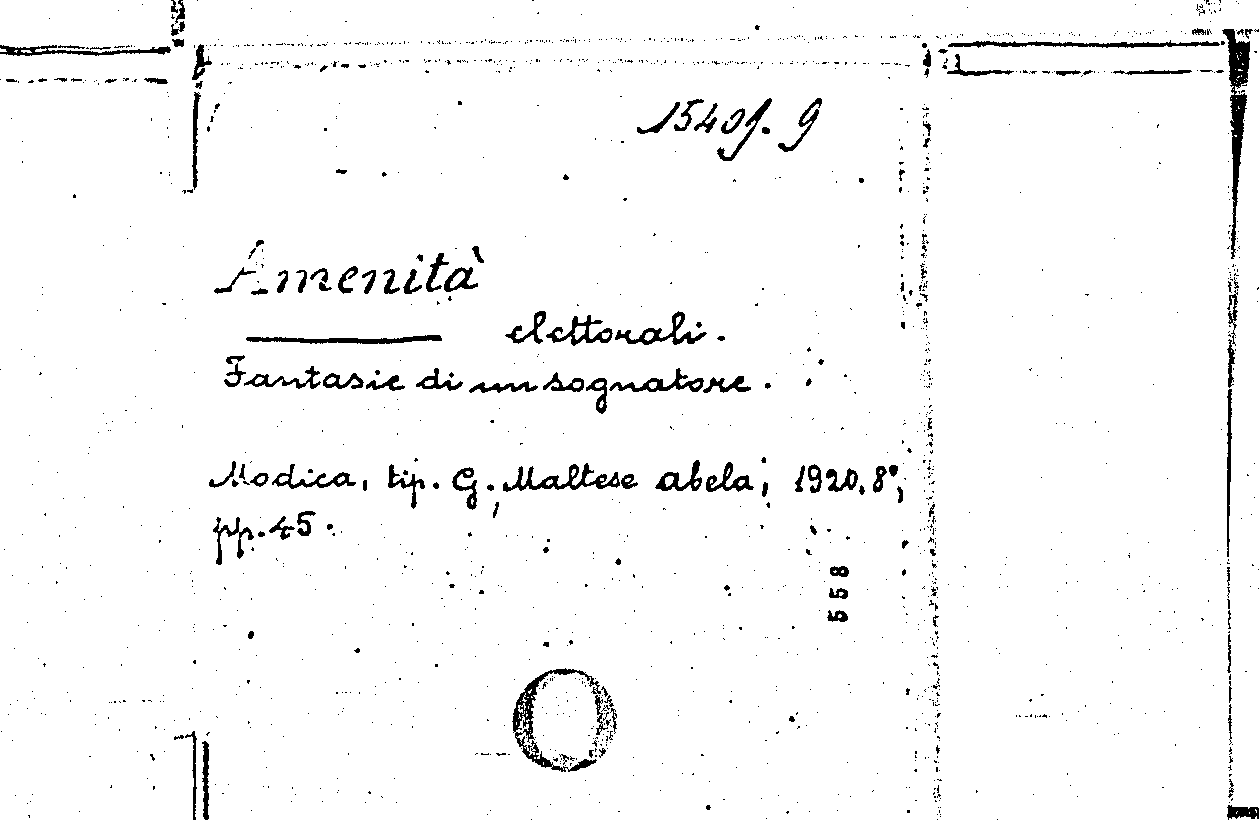 1540f. 9
Amenità
elettorali.
Fantasie di un sognatore.
Modica, tip. G. Maltese Abela, 1920, 8°,
pp. 45.
558